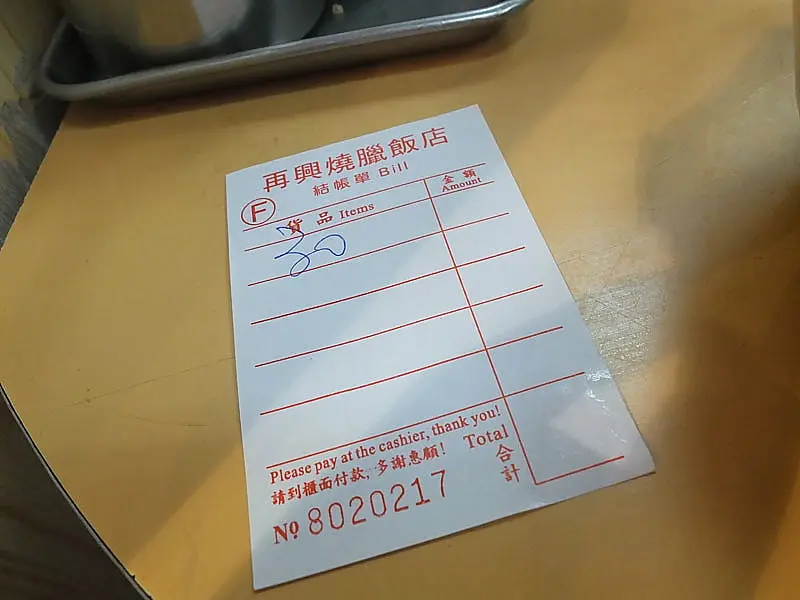 再興燒臘飯店
結帳單 Bill
F
貨品 Items
金額
Amount
30
Please pay at the cashier, thank you!
請到櫃面付款, 多謝惠顧!
Total
合計
Nº 8020217